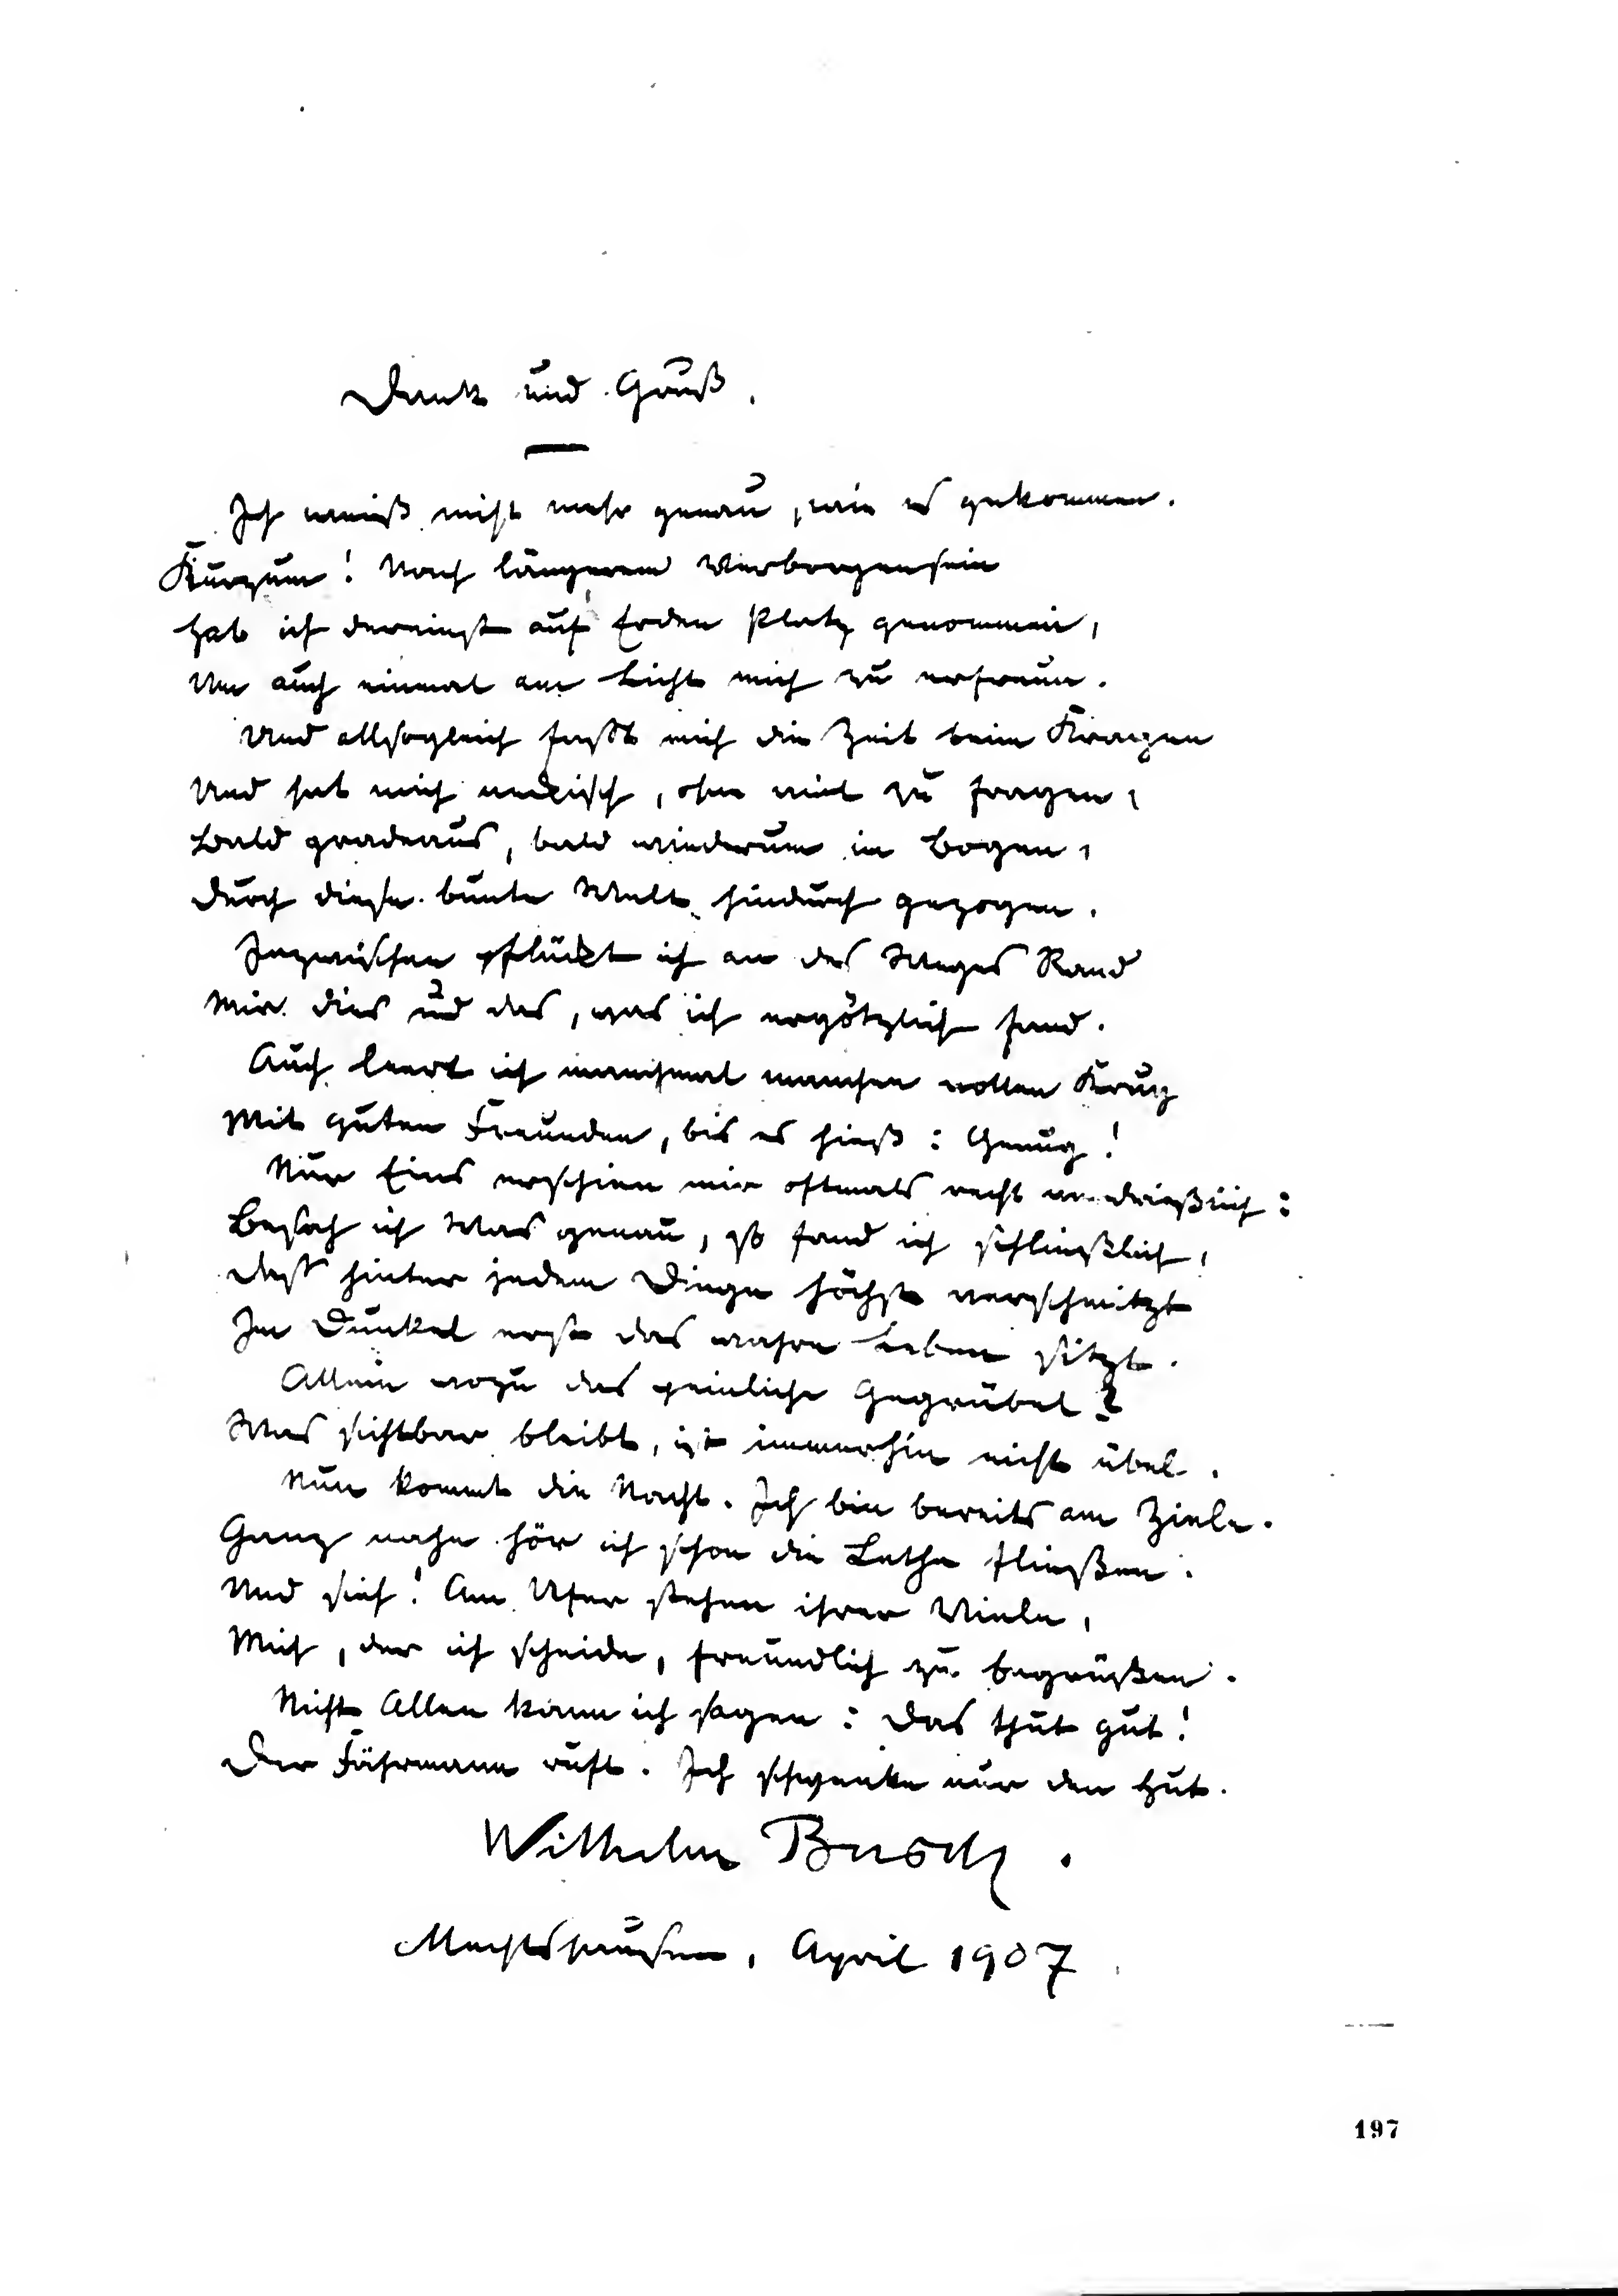 Dank und Gruß.
Ich weiß nicht mehr genau, wie es gekommen.
Kurzum! Nach längerem Verborgensein
Hab ich dereinst auf Erden Platz genommen,
Um auch einmal am Licht mich zu erfreun.
Und allsogleich faßt mich die Zeit beim Kragen
Und hat mich neckisch, ohne viel zu fragen,
Bald gradeaus, bald wiederum im Bogen,
Durch diese bunte Welt hindurch gezogen.
Inzwischen pflückt ich an des Weges Rand
Mir dies und das, was ich ergötzlich fand.
Auch leert ich manchmal manchen vollen Krug
Mit guten Freunden, bis es hieß: Genug!
Nur Eins erschien mir oftmals recht verdrießlich:
Besah ich Was genau, so fand ich schließlich,
Daß hinter jedem Dinge höchst verschmitzt
Im Dunkel erst das wahre Leben sitzt.
Allein wozu das peinliche Gegrübel?
Was sichtbar bleibt, ist immerhin nicht übel.
Nun kommt die Nacht. Ich bin bereits am Ziele.
Ganz nahe hör ich schon die Lethe fließen.
Und sieh! Am Ufer stehen ihrer Viele,
Mich, der ich scheide, freundlich zu begrüßen.
Nicht Allen kann ich sagen: Das thut gut!
Der Fährmann ruft. Ich schwenke nur den Hut.
Wilhelm Busch.
Mechtshausen, April 1907
197